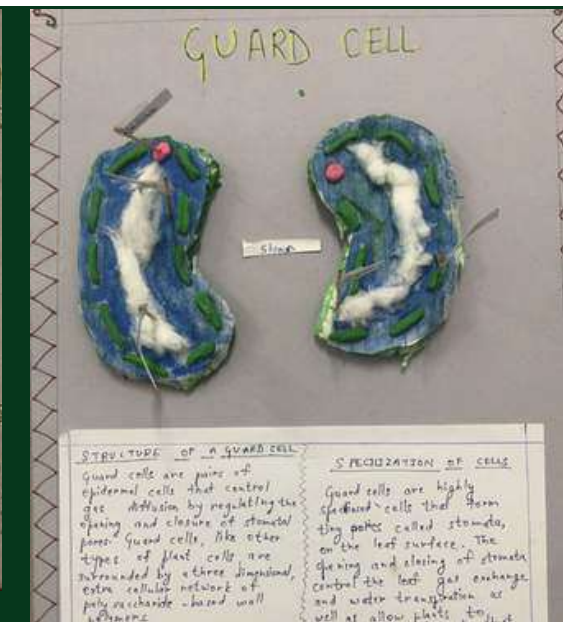 GUARD CELL
STRUCTURE OF A GUARD CELL
Guard cells are pairs of
epidermal cells that control
gas diffusion by regulating the
opening and closure of stomatal
pores. Guard cells, like other
types of plant cells are
surrounded by a three dimensional,
extra cellular network of
polysaccharide-based wall
polymers
SPECILIZATION OF CELLS
Guard cells are highly
cells that form
tiny pores called stomata,
on the leaf surface. The
opening and closing of stomata
control the leaf gas exchange
and water transpiration as
well as allow plants to